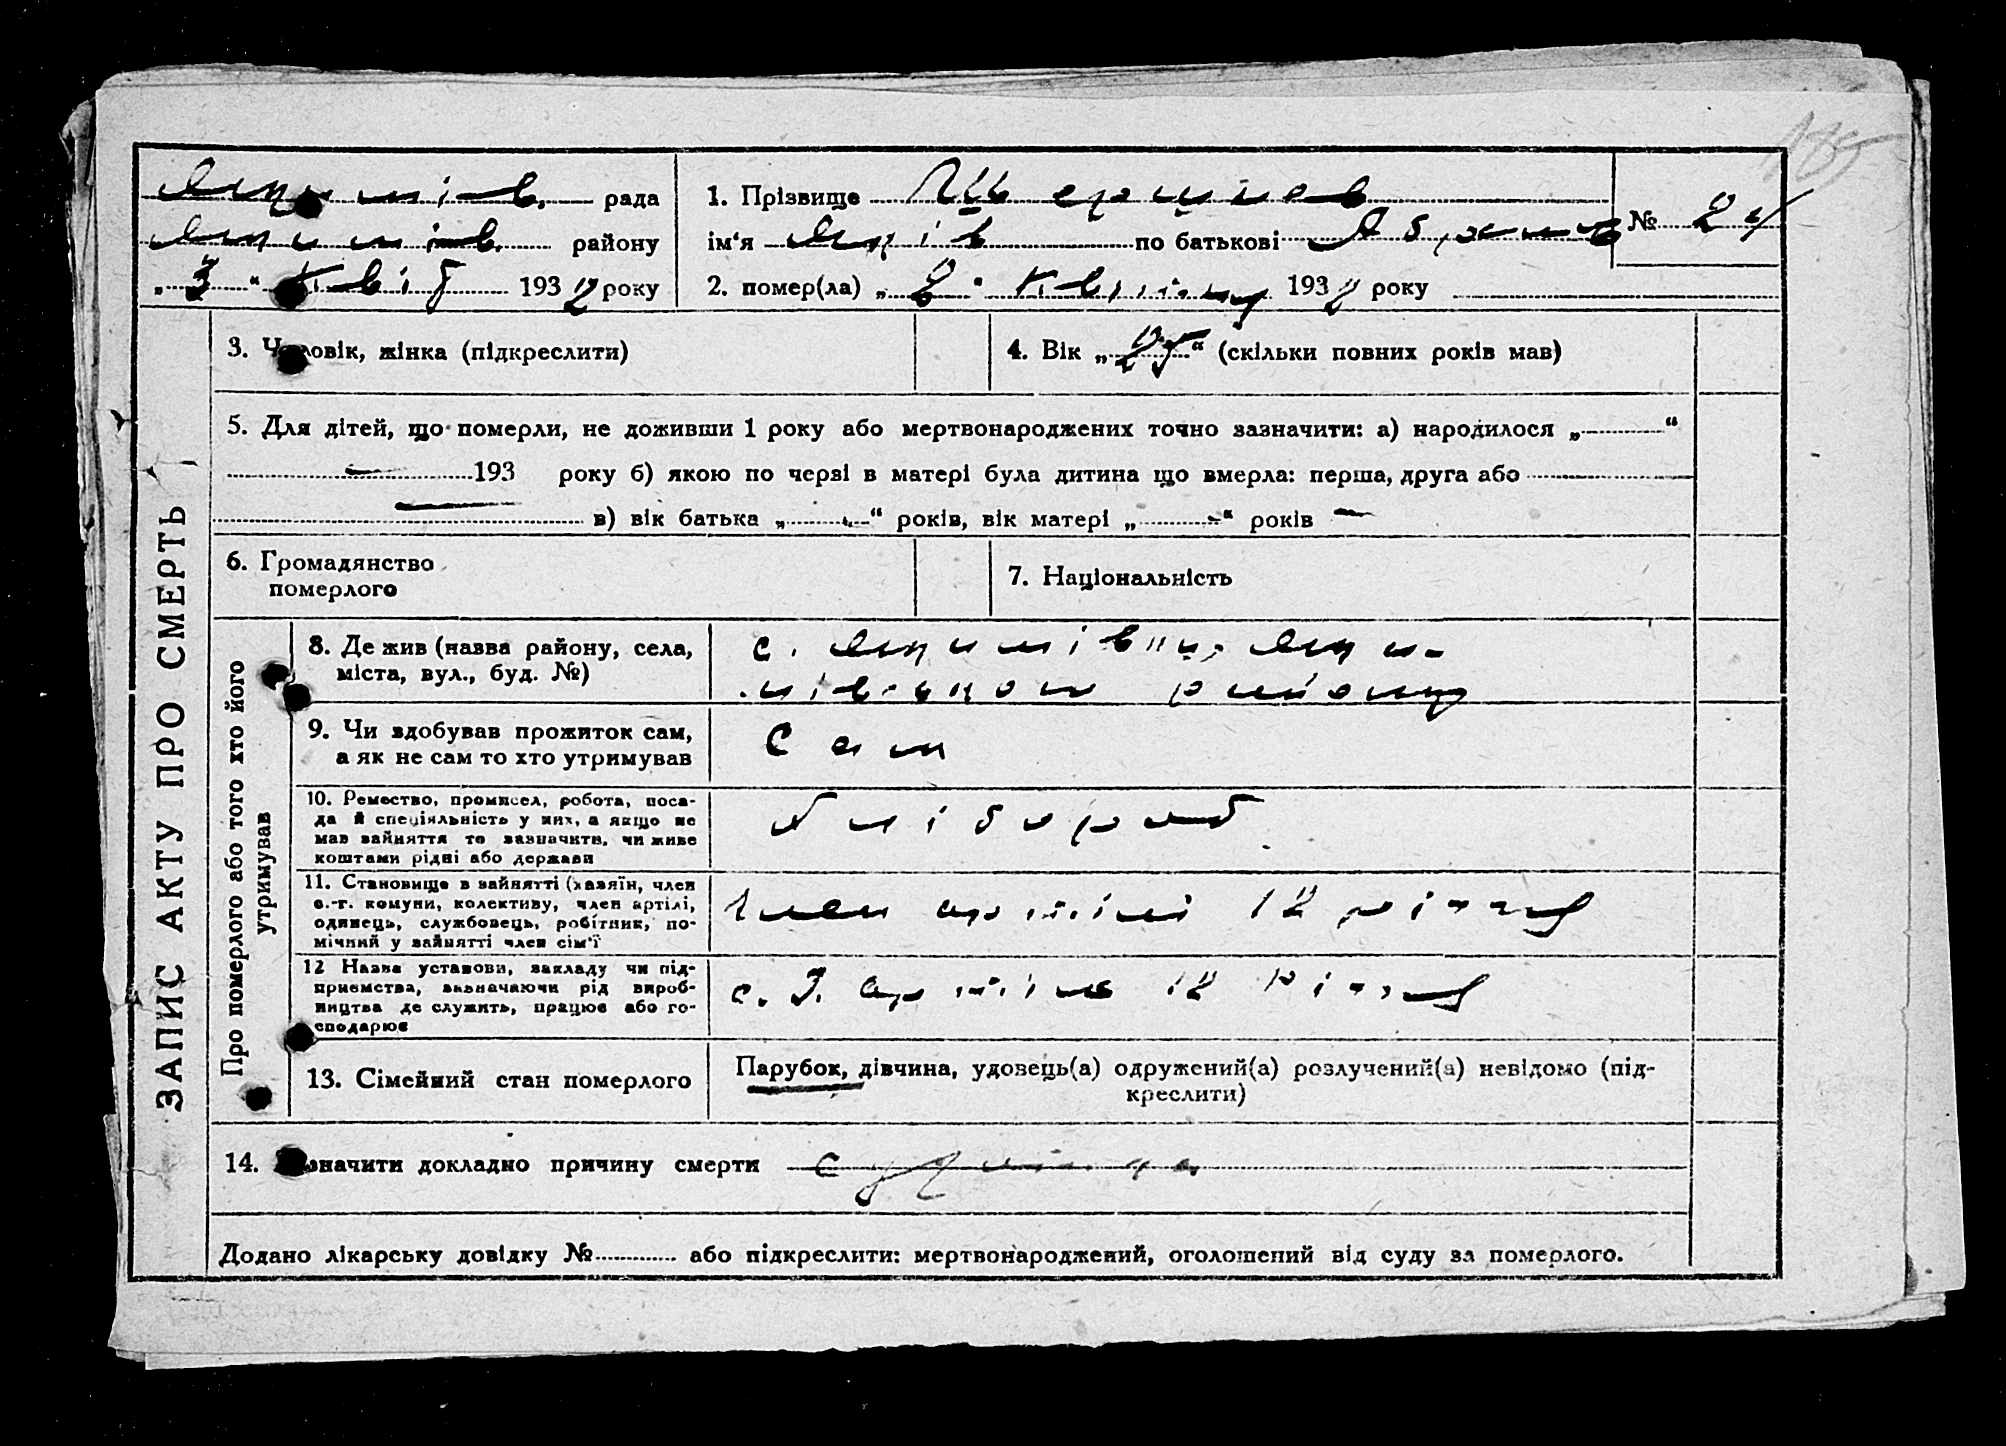 рада
району
„ 3 “ 193 2 року
1. Прізвище
ім‘я по батькові
№ 24
2. помер(ла) „ 2 “ квітня 193 2 року
3. Чоловік, жінка (підкреслити)
4. Вік „ 25 “ (скільки повних років мав)
5. Для дітей, що померли, не доживши 1 року або мертвонароджених точно зазначити: а) народилося „ “
193 року б) якою по черзі в матері була дитина що вмерла: перша, друга або
в) вік батька „ “ років, вік матері „ “ років
6. Громадянство
померлого
7. Національність
ЗАПИС АКТУ ПРО СМЕРТЬ
Про померлого або того хто його
утримував
8. Де жив (назва району, села,
міста, вул., буд. №)
с.
районну
9. Чи здобував прожиток сам,
а як не сам то хто утримував
Сам
10. Ремество, промисел, робота, поса-
да й спеціяльність у них, а якщо не
мав зайняття то зазначити, чи живе
коштами рідні або держави
Хлібороб
11. Становище в зайнятті (хазяїн, член
с.-г. комуни, колективу, член артілі,
одинець, службовець, робітник, по-
мічний у зайнятті член сім'ї
Член артілі 12
12 Назва установи, закладу чи під-
приємства, визначаючи рід вироб-
ництва де служить, працює або го-
сподарює
с. г. артіль 12
13. Сімейний стан померлого
Парубок, дівчина, удовець(а) одружений(а) розлучений(а) невідомо (під-
креслити)
14. Зазначити докладно причину смерти
Додано лікарську довідку № або підкреслити: мертвонароджений, оголошений від суду за померлого.